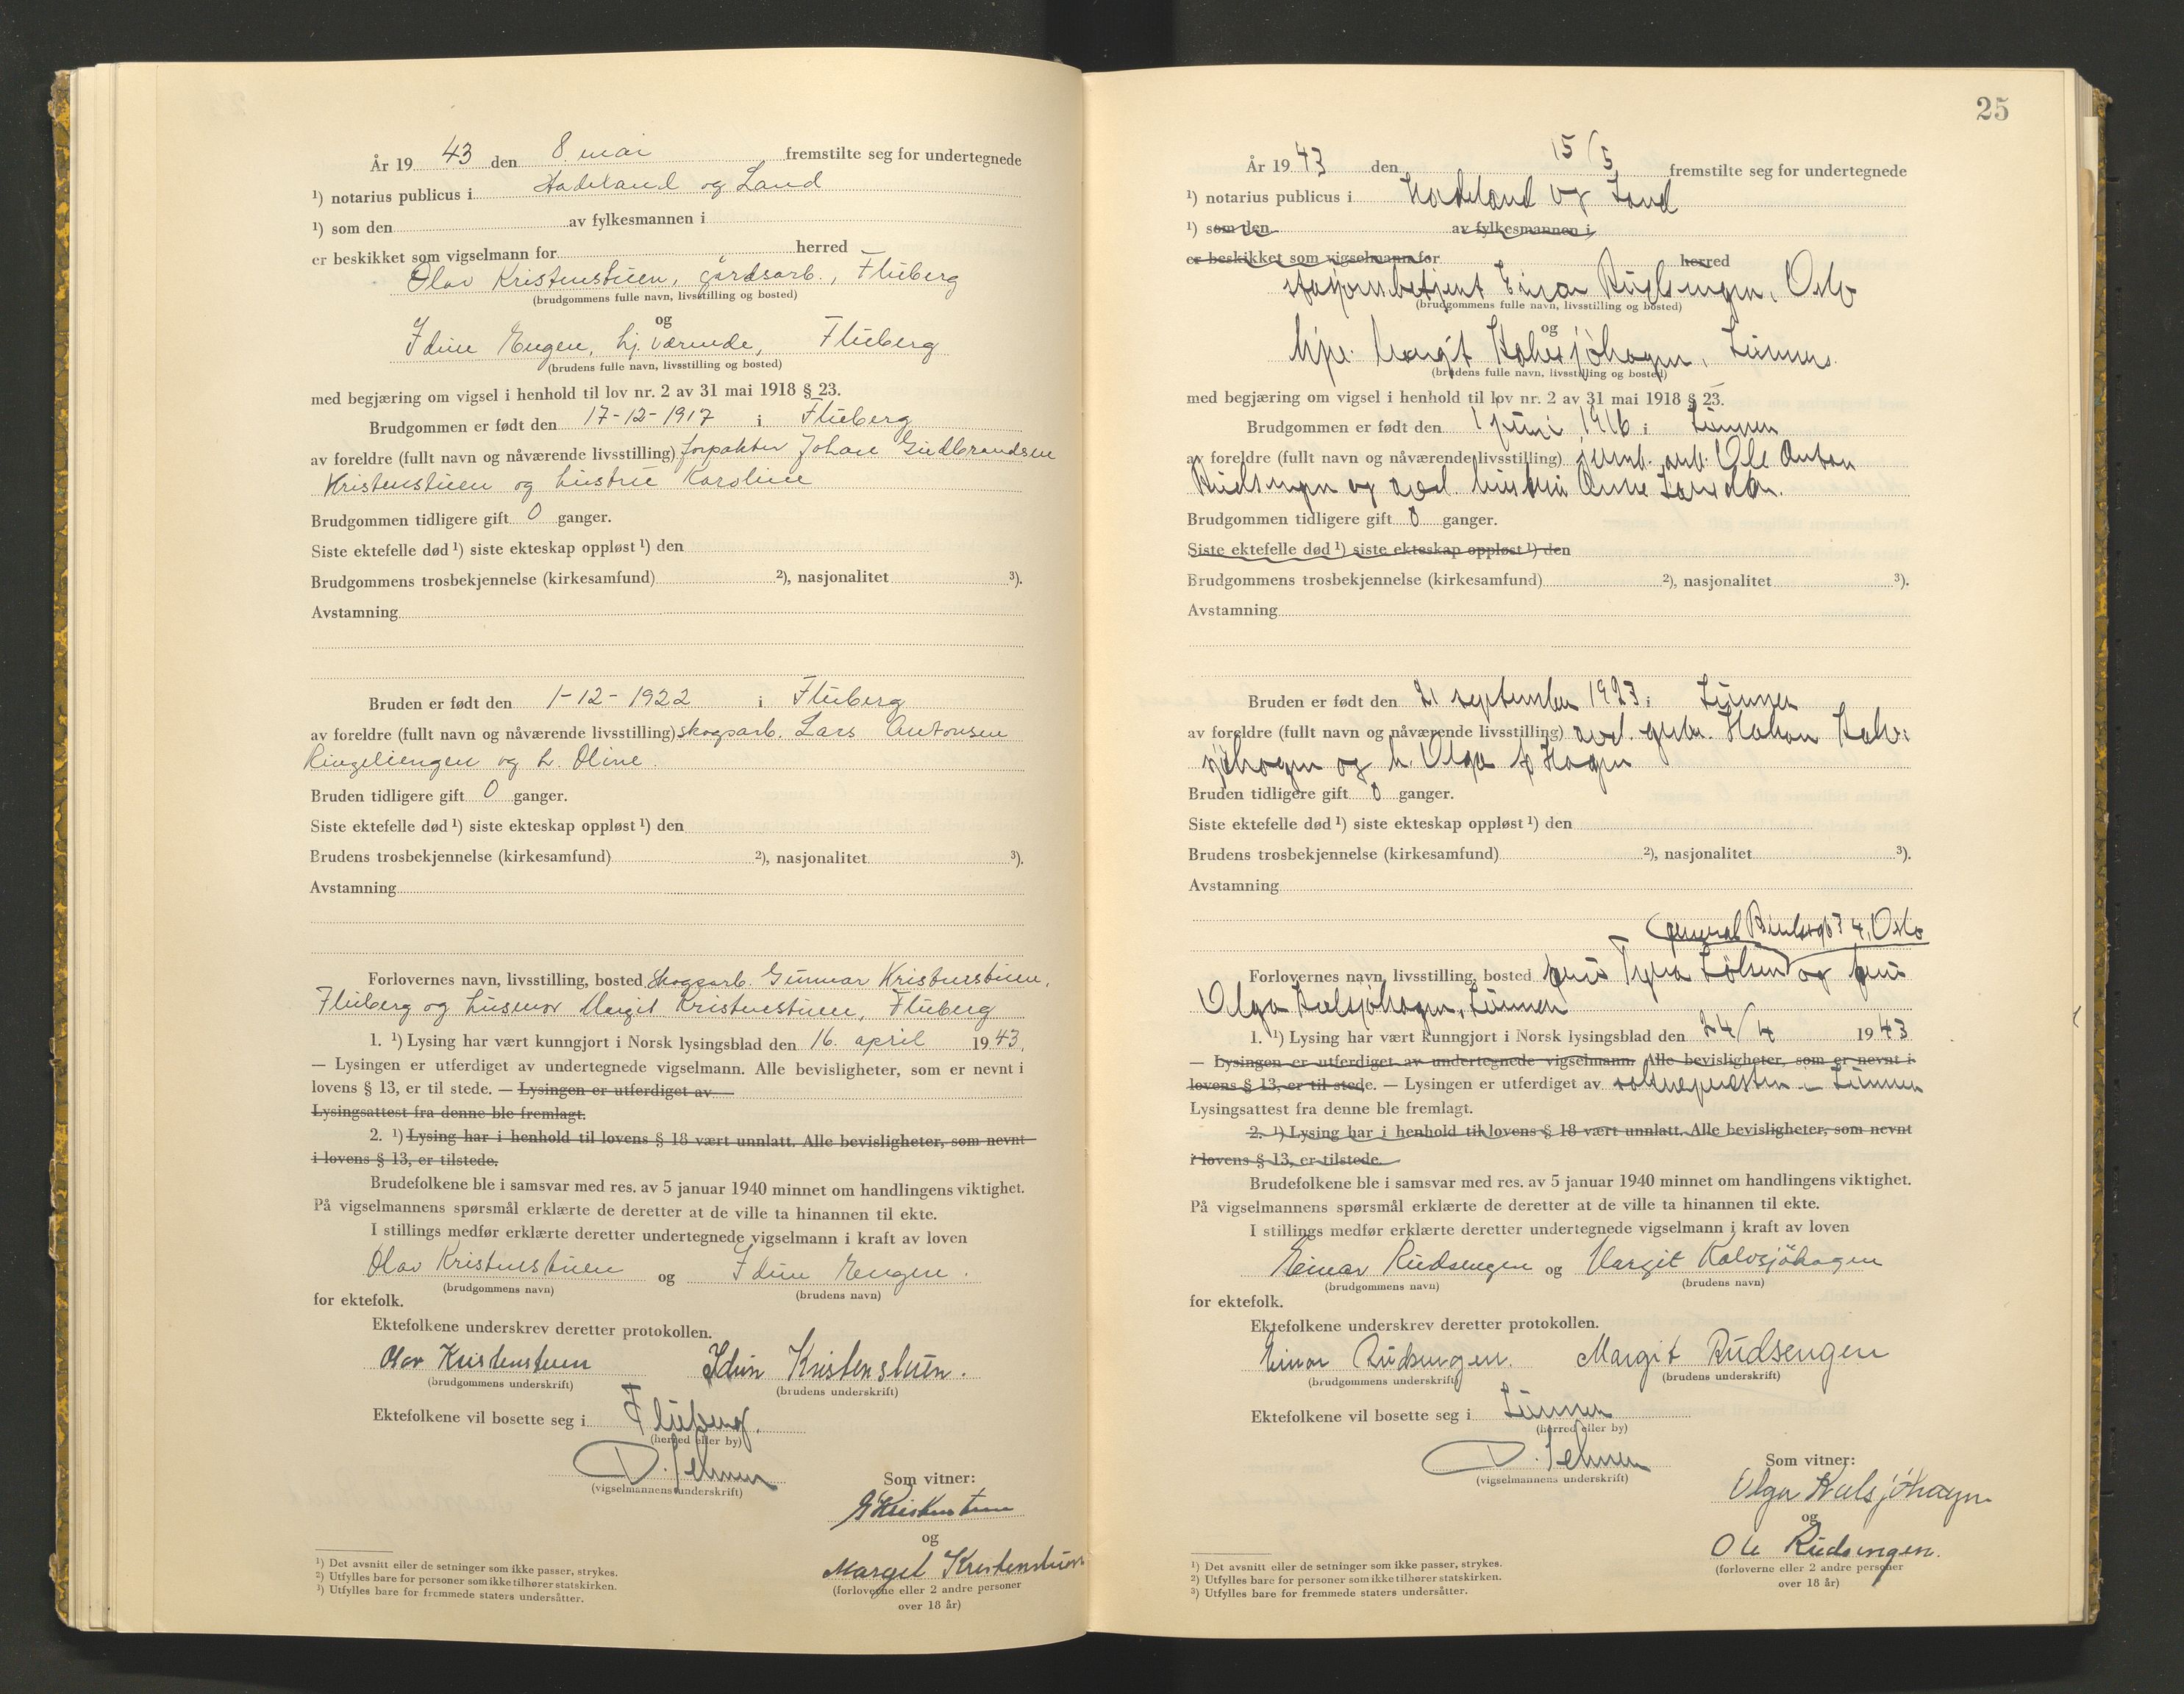 År 19 43 den 8. mai fremstilte seg for undertegnede
¹) notarius publicus i Hadeland og Land
¹) som den av fylkesmannen i
er beskikket som vigselmann for herred
Olav Kristenstuen, gårdsarb., Fluberg
(brudgommens fulle navn, livsstilling og bosted)
og
Idun Engen, hj. værende, Fluberg
(brudens fulle navn, livsstilling og bosted)
med begjæring om vigsel i henhold til lov nr. 2 av 31 mai 1918 § 23.
Brudgommen er født den 17-12-1917 i Fluberg
av foreldre (fullt navn og nåværende livsstilling) forpakter Johan Gudbrandsen
Kristenstuen og hustru Karoline
Brudgommen tidligere gift 0 ganger.
Siste ektefelle død ¹) siste ekteskap oppløst ¹) den
Brudgommens trosbekjennelse (kirkesamfund) ²), nasjonalitet ³).
Avstamning
Bruden er født den 1-12-1922 i Fluberg
av foreldre (fullt navn og nåværende livsstilling) skogsarb. Lars Antonsen
Ringeliengen og h. Oline.
Bruden tidligere gift 0 ganger.
Siste ektefelle død ¹) siste ekteskap oppløst ¹) den
Brudens trosbekjennelse (kirkesamfund) ²), nasjonalitet ³).
Avstamning
Forlovernes navn, livsstilling, bosted Skogsarb. Gunnar Kristenstuen,
Fluberg og husmor Margit Kristenstuen, Fluberg
1. ¹) Lysing har vært kunngjort i Norsk lysingsblad den 16. april 1943.
— Lysingen er utferdiget av undertegnede vigselmann. Alle bevisligheter, som er nevnt i
lovens § 13, er til stede. — Lysingen er utferdiget av
Lysingsattest fra denne ble fremlagt.
2. ¹) Lysing har i henhold til lovens § 18 vært unnlatt. Alle bevisligheter, som nevnt
i lovens § 13, er tilstede.
Brudefolkene ble i samsvar med res. av 5 januar 1940 minnet om handlingens viktighet.
På vigselmannens spørsmål erklærte de deretter at de ville ta hinannen til ekte.
I stillings medfør erklærte deretter undertegnede vigselmann i kraft av loven
Olav Kristenstuen og Idun Engen.
(brudgommens navn) (brudens navn)
for ektefolk.
Ektefolkene underskrev deretter protokollen.
Olav Kristenstuen Idun Kristenstuen.
(brudgommens underskrift) (brudens underskrift)
Ektefolkene vil bosette seg i Fluberg.
(herred eller by)
(vigselmannens underskrift)
Som vitner:
G Kristenstuen
og
Margit Kristenstuen
(forloverne eller 2 andre personer
over 18 år)
¹) Det avsnitt eller de setninger som ikke passer, strykes.
²) Utfylles bare for personer som ikke tilhører statskirken.
³) Utfylles bare for fremmede staters undersåtter.
25
År 19 43 den 15/5 fremstilte seg for undertegnede
¹) notarius publicus i Hadeland og Land
¹) som den av fylkesmannen i
er beskikket som vigselmann for herred
stasjonsbetjent Einar Rudsengen, Oslo
(brudgommens fulle navn, livsstilling og bosted)
og
Margit Kalvsjøhagen, Lunner.
(brudens fulle navn, livsstilling og bosted)
med begjæring om vigsel i henhold til lov nr. 2 av 31 mai 1918 § 23.
Brudgommen er født den 1 juni 1916 i Lunner
av foreldre (fullt navn og nåværende livsstilling) jernb. arb. Ole Anton
Rudsengen og avd. hustru Anne
Brudgommen tidligere gift 0 ganger.
Siste ektefelle død ¹) siste ekteskap oppløst ¹) den
Brudgommens trosbekjennelse (kirkesamfund) ²), nasjonalitet ³).
Avstamning
Bruden er født den 21 september 1923 i Lunner
av foreldre (fullt navn og nåværende livsstilling) avd. gbr. Håkon Kalv-
sjøhagen og h. Olga f Hagen
Bruden tidligere gift 0 ganger.
Siste ektefelle død ¹) siste ekteskap oppløst ¹) den
Brudens trosbekjennelse (kirkesamfund) ²), nasjonalitet ³).
Avstamning
General 4, Oslo
Forlovernes navn, livsstilling, bosted fru og fru
Olga Kalsjøhagen, Lunner
1. ¹) Lysing har vært kunngjort i Norsk lysingsblad den 24/4 1943
— Lysingen er utferdiget av undertegnede vigselmann. Alle bevisligheter, som er nevnt i
lovens § 13, er til stede. — Lysingen er utferdiget av soknepresten i Lunner
Lysingsattest fra denne ble fremlagt.
2. ¹) Lysing har i henhold til lovens § 18 vært unnlatt. Alle bevisligheter, som nevnt
i lovens § 13, er tilstede.
Brudefolkene ble i samsvar med res. av 5 januar 1940 minnet om handlingens viktighet.
På vigselmannens spørsmål erklærte de deretter at de ville ta hinannen til ekte.
I stillings medfør erklærte deretter undertegnede vigselmann i kraft av loven
Einar Rudsengen og Margit Kalvsjøhagen
(brudgommens navn) (brudens navn)
for ektefolk.
Ektefolkene underskrev deretter protokollen.
Einar Rudsengen. Margit Rudsengen
(brudgommens underskrift) (brudens underskrift)
Ektefolkene vil bosette seg i Lunner
(herred eller by)
(vigselmannens underskrift)
Som vitner:
Olga Kalsjøhagen
og
Ole Rudsengen.
(forloverne eller 2 andre personer
over 18 år)
¹) Det avsnitt eller de setninger som ikke passer, strykes.
²) Utfylles bare for personer som ikke tilhører statskirken.
³) Utfylles bare for fremmede staters undersåtter.